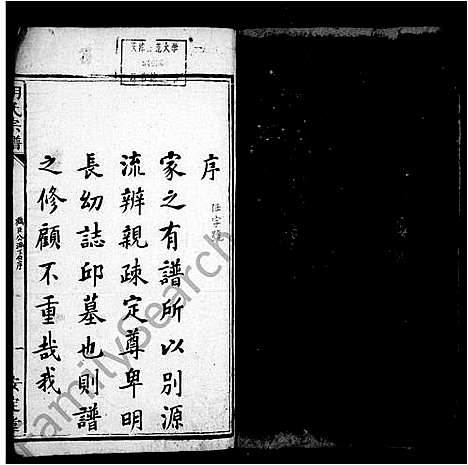 序
家之有譜所以別源
流辨親疎定尊卑明
長幼誌邱墓也則譜
之修顧不重哉我
氏宗譜
一
安定堂
FamilySearch